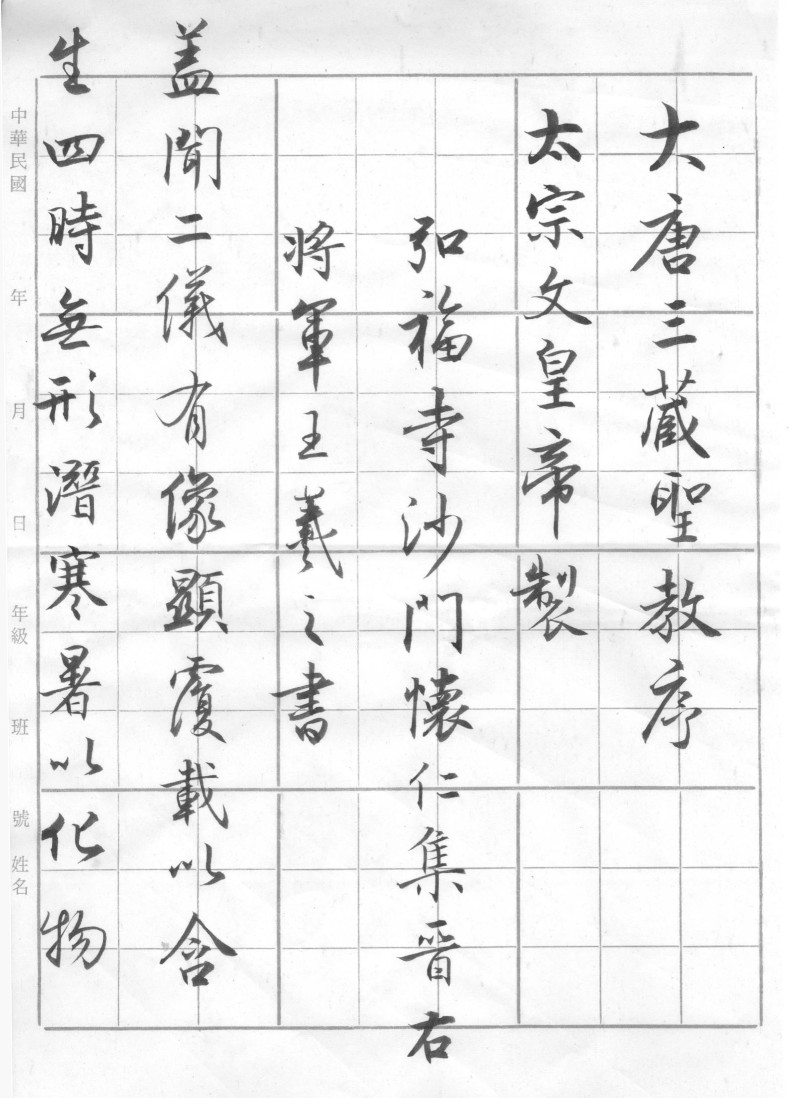 大唐三蔵聖教序
太宗文皇帝製
弘福寺沙門懷仁集晉右
將軍王羲之書
蓋聞二儀有像顯覆載以含
生四時無形潛寒暑以化物
中華民國 年 月 日 年級 班 號 姓名